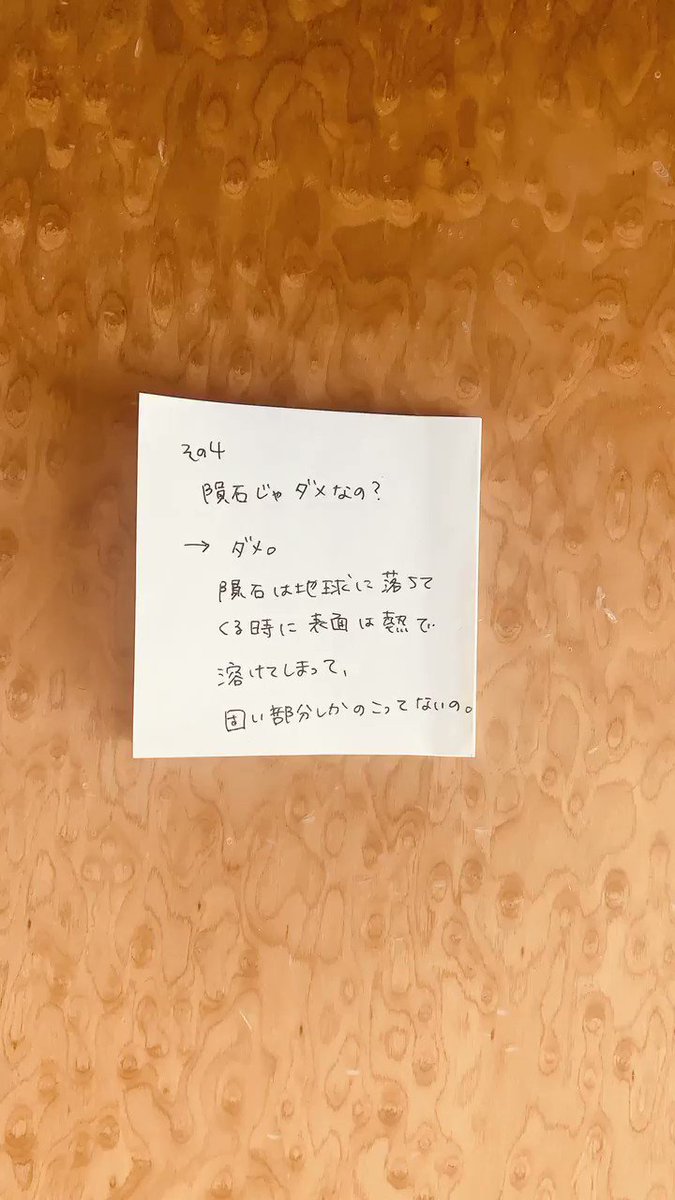 その4
隕石じゃダメなの?
→ ダメ。
隕石は地球に落ちて
くる時に表面は熱で
溶けてしまって、
固い部分しかのこってないの。